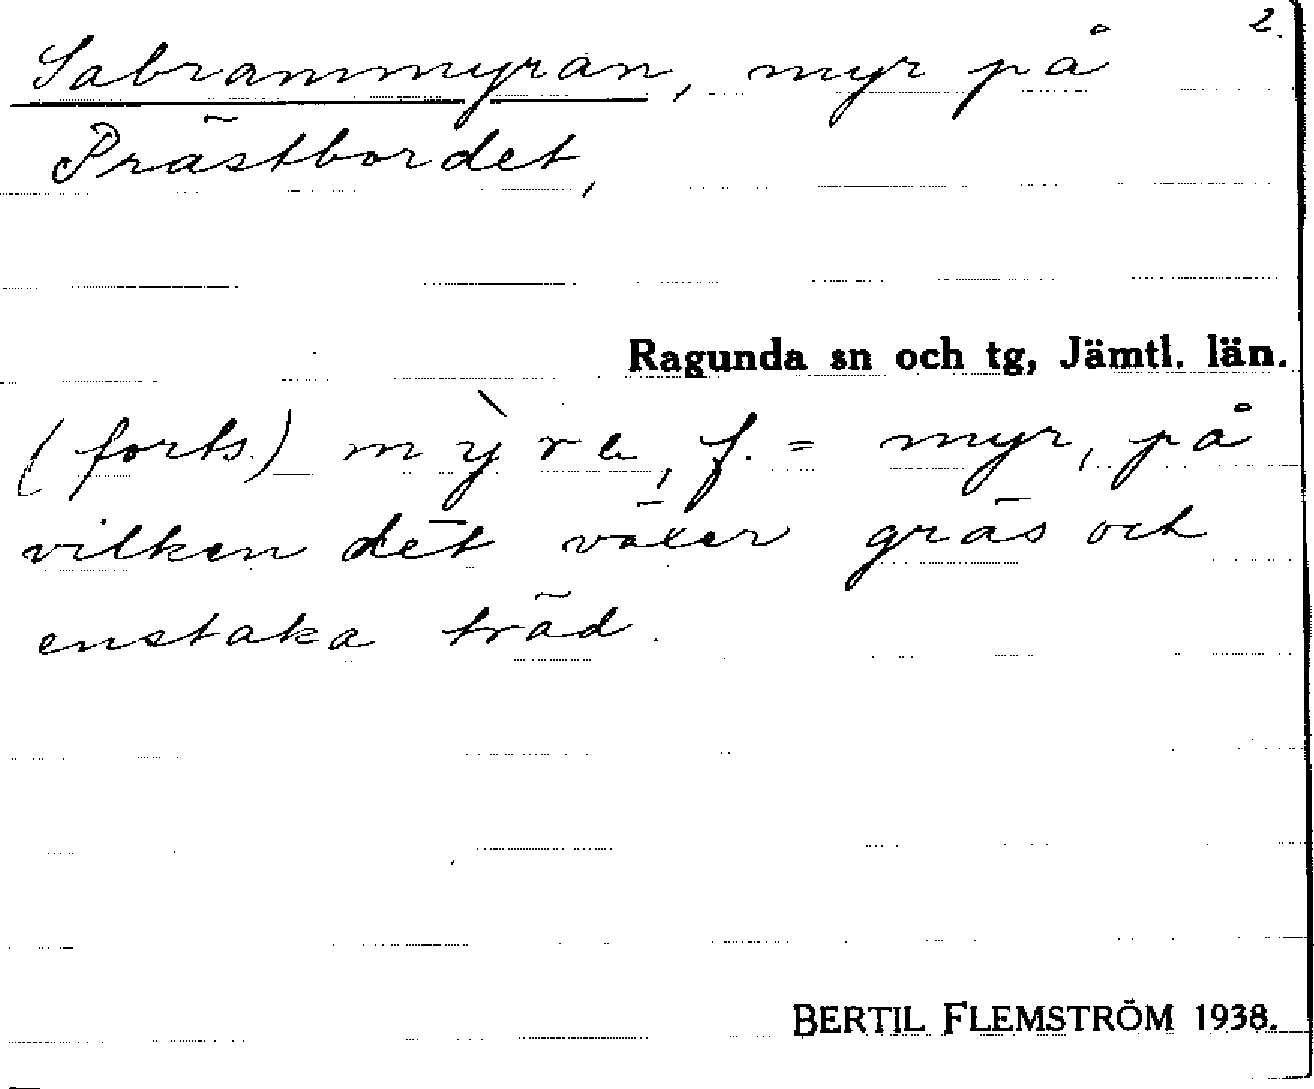 2.
Sabrammyran, myr på
Prästbordet,
Ragunda sn och tg, Jämtl. län.
(forts.) f. = myr, på
vilken det växer gräs och
enstaka träd.
BERTIL FLEMSTRÖM 1938.